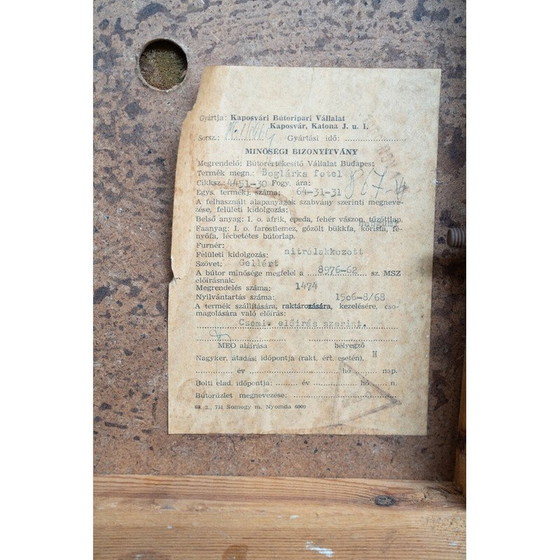 Gyártja: Kaposvári Bútoripari Vállalat
Kaposvár, Katona J. u. 1.
Sorsz.: Gyártási idő:
MINŐSÉGI BIZONYÍTVÁNY
Megrendelő: Bútorértékesítő Vállalat Budapest
Termék megn. Boglárka fotel
Cikksz. 4451-30 Fogy. ára: 867.-
Egys. termékj. száma: 64-31-31
A felhasznált alapanyagok szabvány szerinti megneve-
zése, felületi kidolgozás:
Belső anyag: I. o. afrik, epeda, fehér vászon, rúgótlap.
Faanyag: I. o. farostlemez, gőzölt bükkfa, kőrisfa, fe-
nyőfa, lécbetétes bútorlap.
Furnér:
Felületi kidolgozás: nitrólakkozott
Szövet: Gellért
A bútor minősége megfelel a 8976-62 sz. MSZ
előírásnak.
Megrendelés száma: 1474
Nyilvántartás száma: 1506-8/68
A termék szállítására, raktározására, kezelésére, cso-
magolására való előírás:
Csom. előírás szerint.
MEO aláírása bélyegző
Nagyker. átadási időpontja (rakt. ért. esetén)
év hó nap.
Bolti elad. időpontja: év hó n.
Bútorüzlet megnevezése: